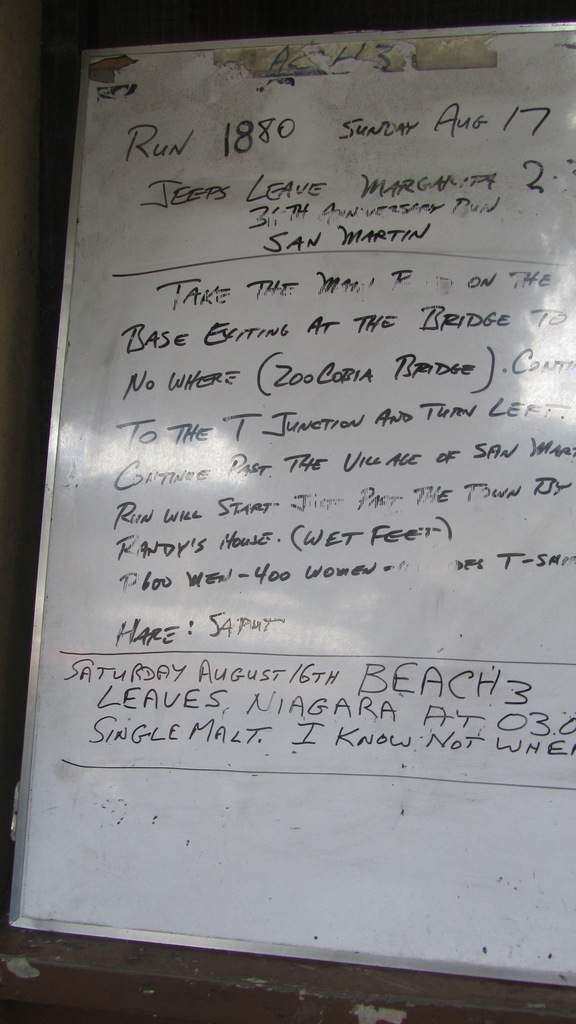 AC H3
RUN 1880 SUNDAY AUG 17
JEEPS LEAVE MARGARITA 2:
ANNIVERSARY RUN
SAN MARTIN
TAKE THE MAIN ON THE
BASE EXITING AT THE BRIDGE TO
NO WHERE (ZOOCOBIA BRIDGE). CONTI
TO THE T JUNCTION AND TURN LEFT
CONTINUE PAST THE VILLAGE OF SAN MART
RUN WILL START JUST PAST THE TOWN BY
RANDY'S HOUSE. (WET FEET)
P600 MEN - 400 WOMEN - DES T-SHI
HARE:
SATURDAY AUGUST 16TH BEACH 3
LEAVES NIAGARA AT 03.0
SINGLE MALT. I KNOW NOT WHE